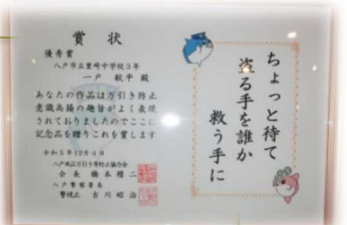 賞状
優秀賞
八戸市立豊崎中学校3年
一戸 紋平 殿
あなたの作品は万引き防止
意識高揚の趣旨がよく表現
されておりましたのでここに
記念品を贈りこれを賞します
令和5年12月4日
会長 橋本精二
八戸警察署長
警視正 古川昭治
ちょっと待て
盗る手を誰か
救う手に